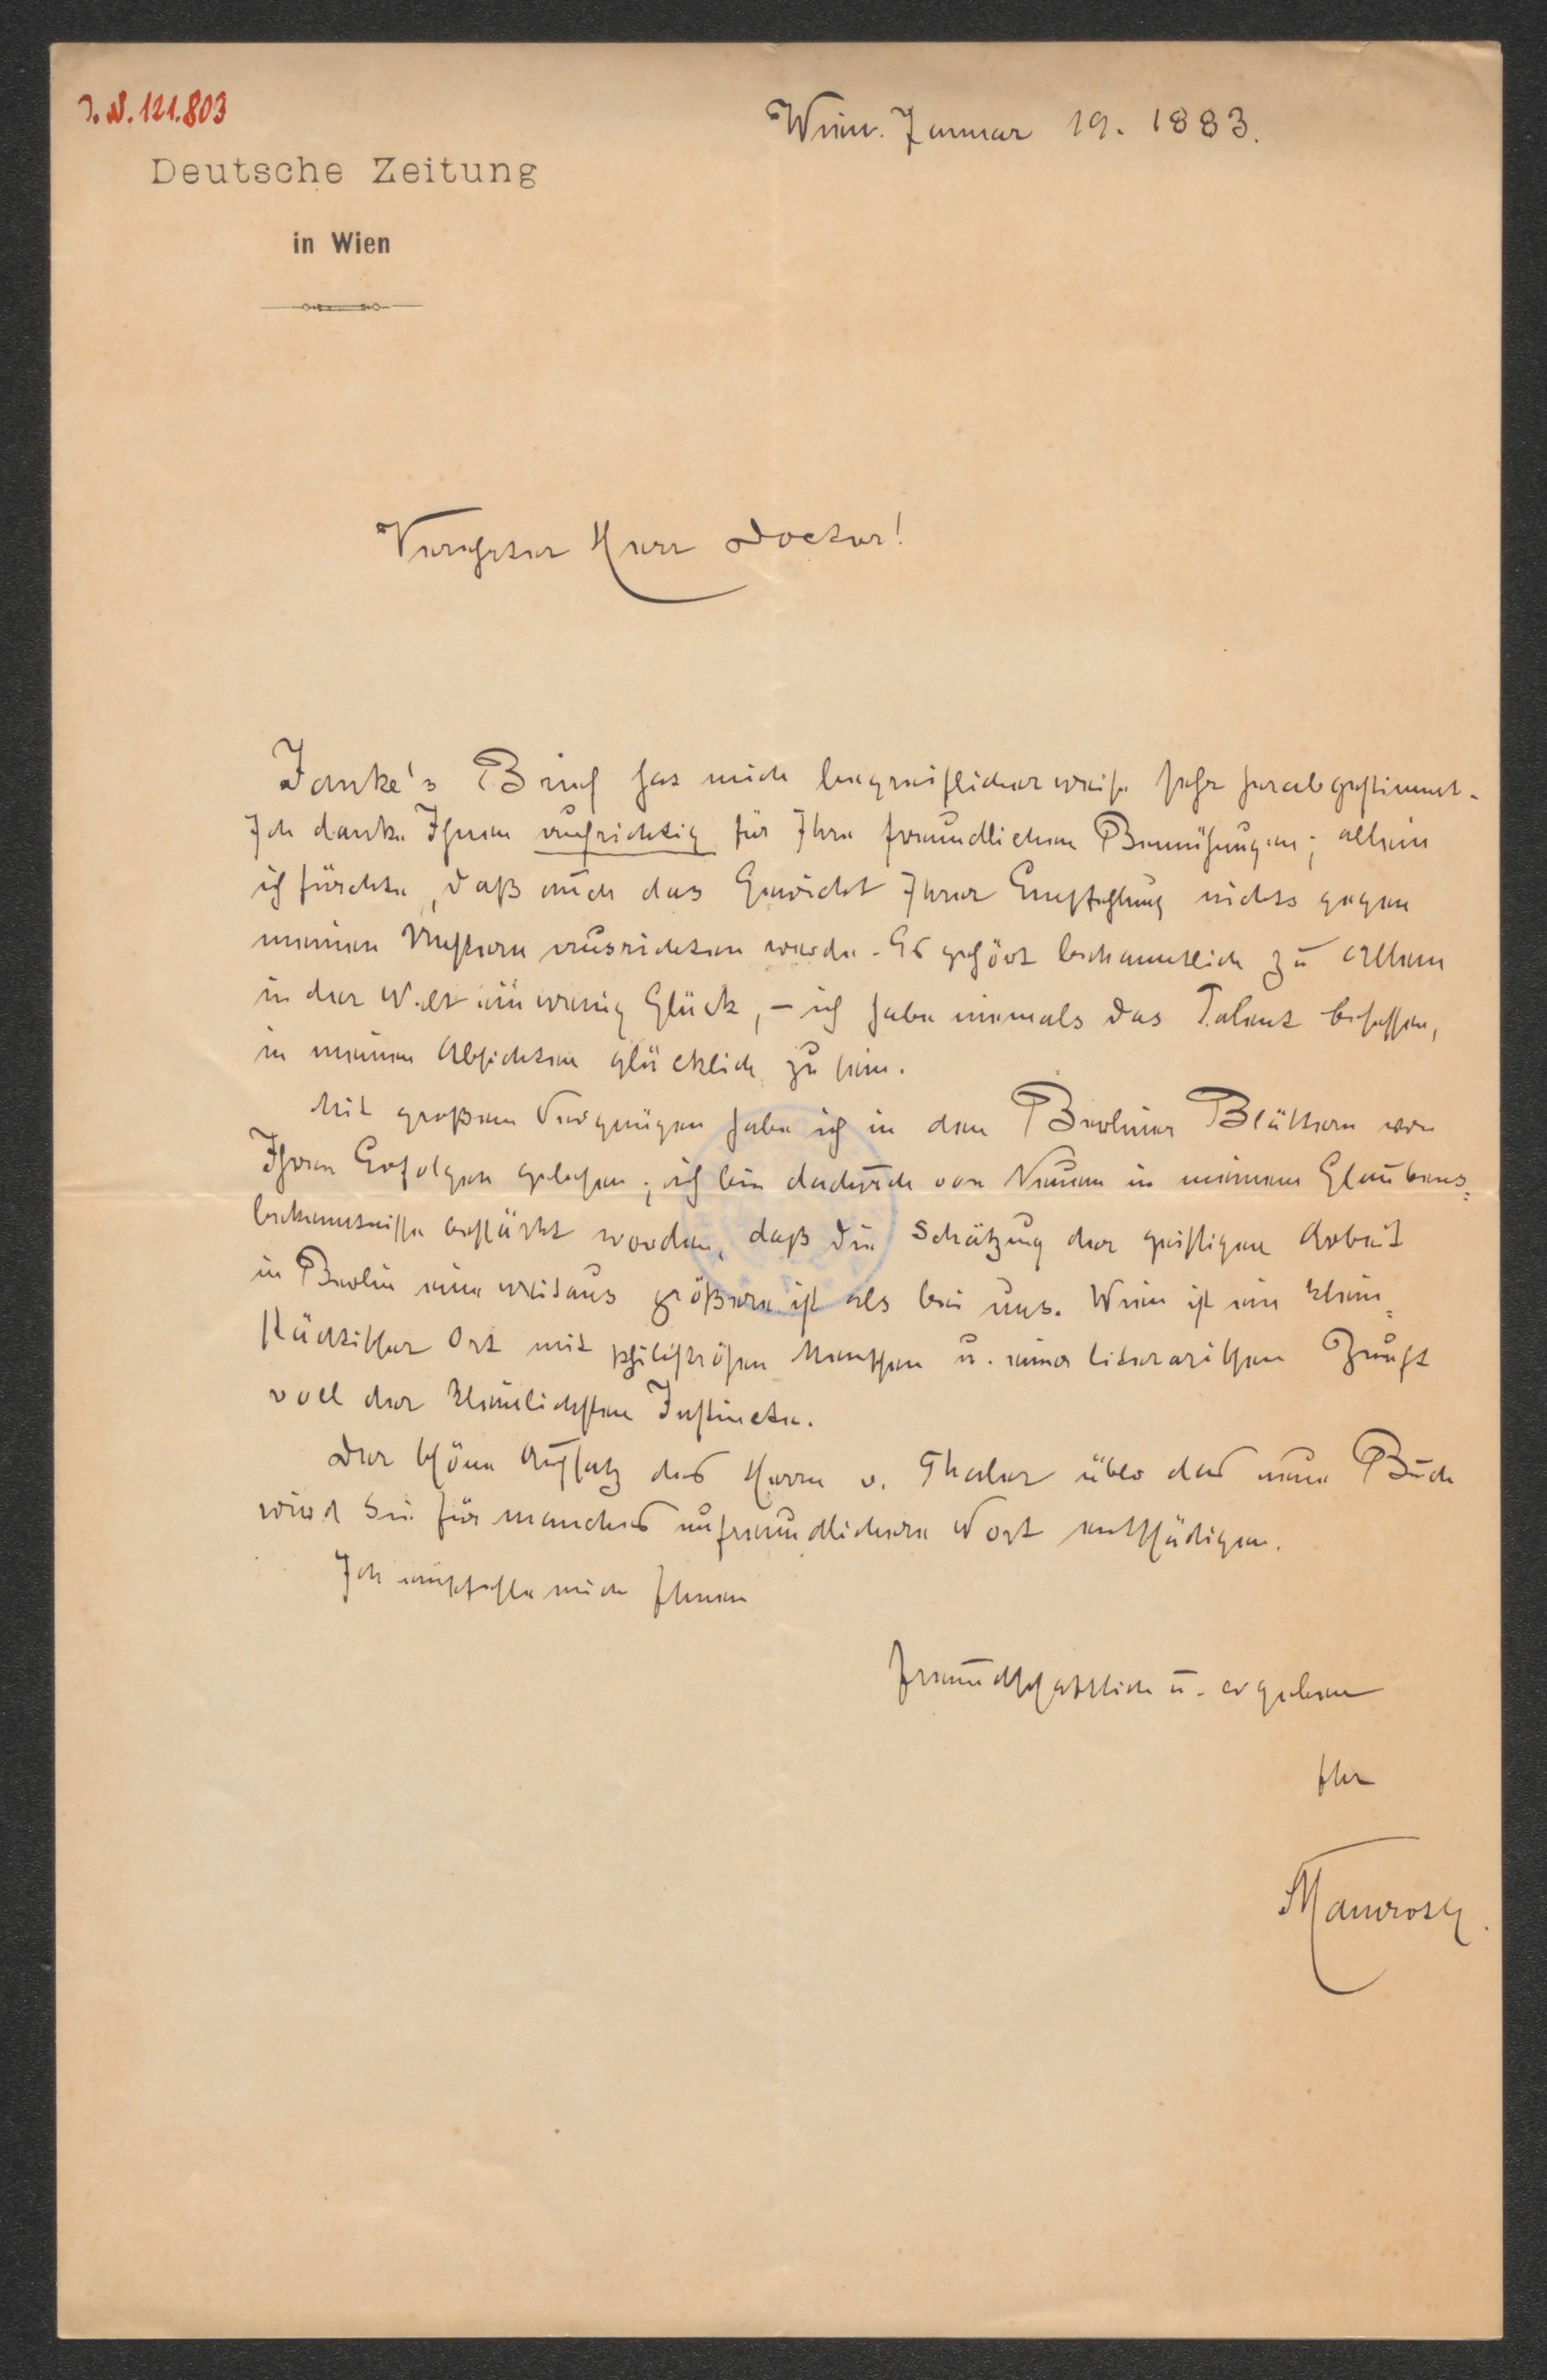 J. N. 121.803
Wien. Januar 19. 1883.
Deutsche Zeitung
in Wien
Verehrter Herr Doctor!
Janke's Brief hat mich begreiflicherweise sehr herabgestimmt.
Ich danke Ihnen aufrichtig für Ihre freundlichen Bemühungen; allein
ich fürchte, daß auch das Gewicht Ihrer Empfehlung nichts gegen
meinen Unstern ausrichten werde. Es gehört bekanntlich zu Allem
in der Welt ein wenig Glück, – ich habe niemals das Talent besessen,
in meinen Absichten glücklich zu sein.
Mit großem Vergnügen habe ich in den Berliner Blättern von
Ihren Erfolgen gelesen; ich bin dadurch von Neuem in meinem Glaubens=
bekenntnisse bestärkt worden, daß die Schätzung der geistigen Arbeit
in Berlin eine weitaus größere ist als bei uns. Wien ist ein klein=
städtischer Ort mit philiströsen Menschen u. einer literarischen Zunft
voll der kleinlichsten Instincte.
Der schöne Aufsatz des Herrn v. Thaler über das neue Buch
wird Sie für manches unfreundlichere Wort entschädigen.
Ich empfehle mich Ihnen
freundschaftlich u. ergeben
Ihr